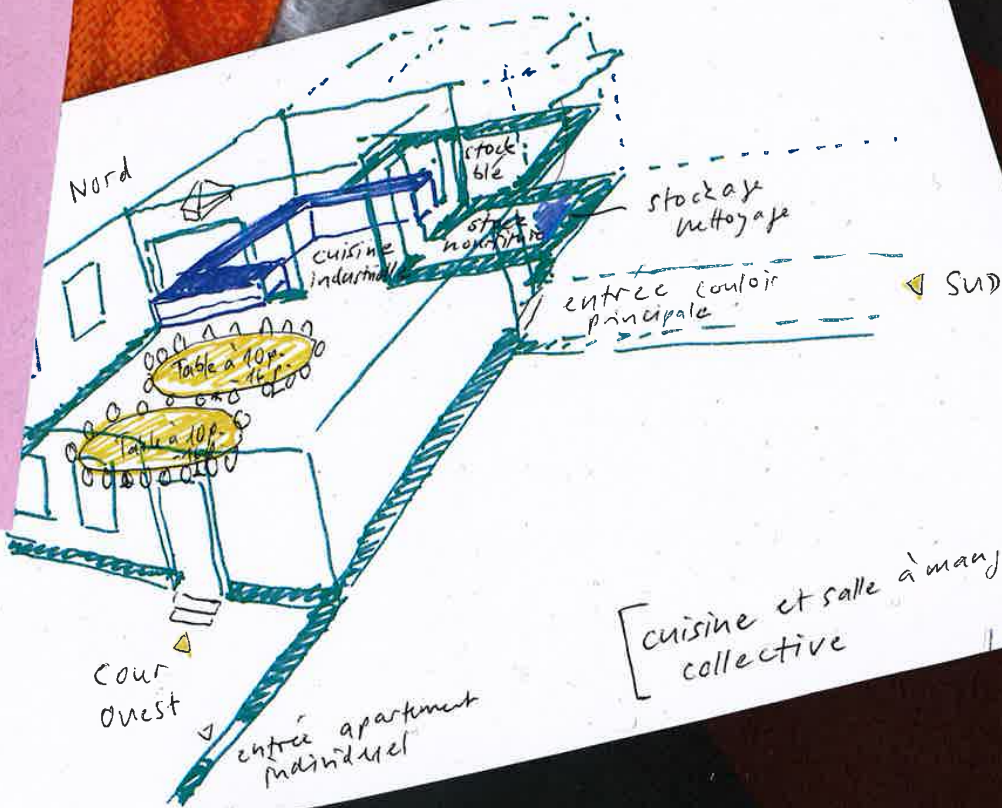 Nord
stock
blé
stock
nourriture
stockage
nettoyage
cuisine
industrielle
entrée couloir
principale
SUD
Table à 10 p.
- 16 p.
Table à 10 p.
cour
ouest
entrée apartement
individuel
cuisine et salle à mang
collective